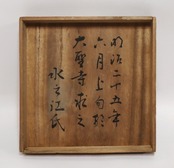 明治二十五年
六月上旬於
大聖寺求之
永之江氏